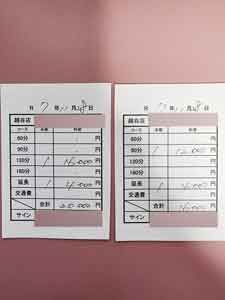 月 7 年 11 月 28 日
越谷店
コース 本数 料金
60分 円
90分 円
120分 1 16,000 円
180分 円
延長 1 4,000 円
交通費 円
合計 20,000 円
サイン
月 7 年 11 月 日
越谷店
コース 本数 料金
60分 円
90分 1 12,000 円
120分 円
180分 円
延長 1 4,000 円
交通費 円
合計 16,000 円
サイン